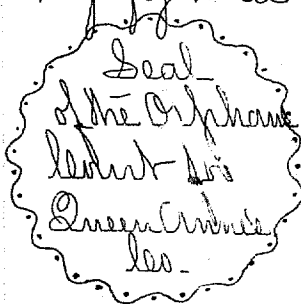 Seal
of the Orphans
Court for
Queen Anne's
Co.